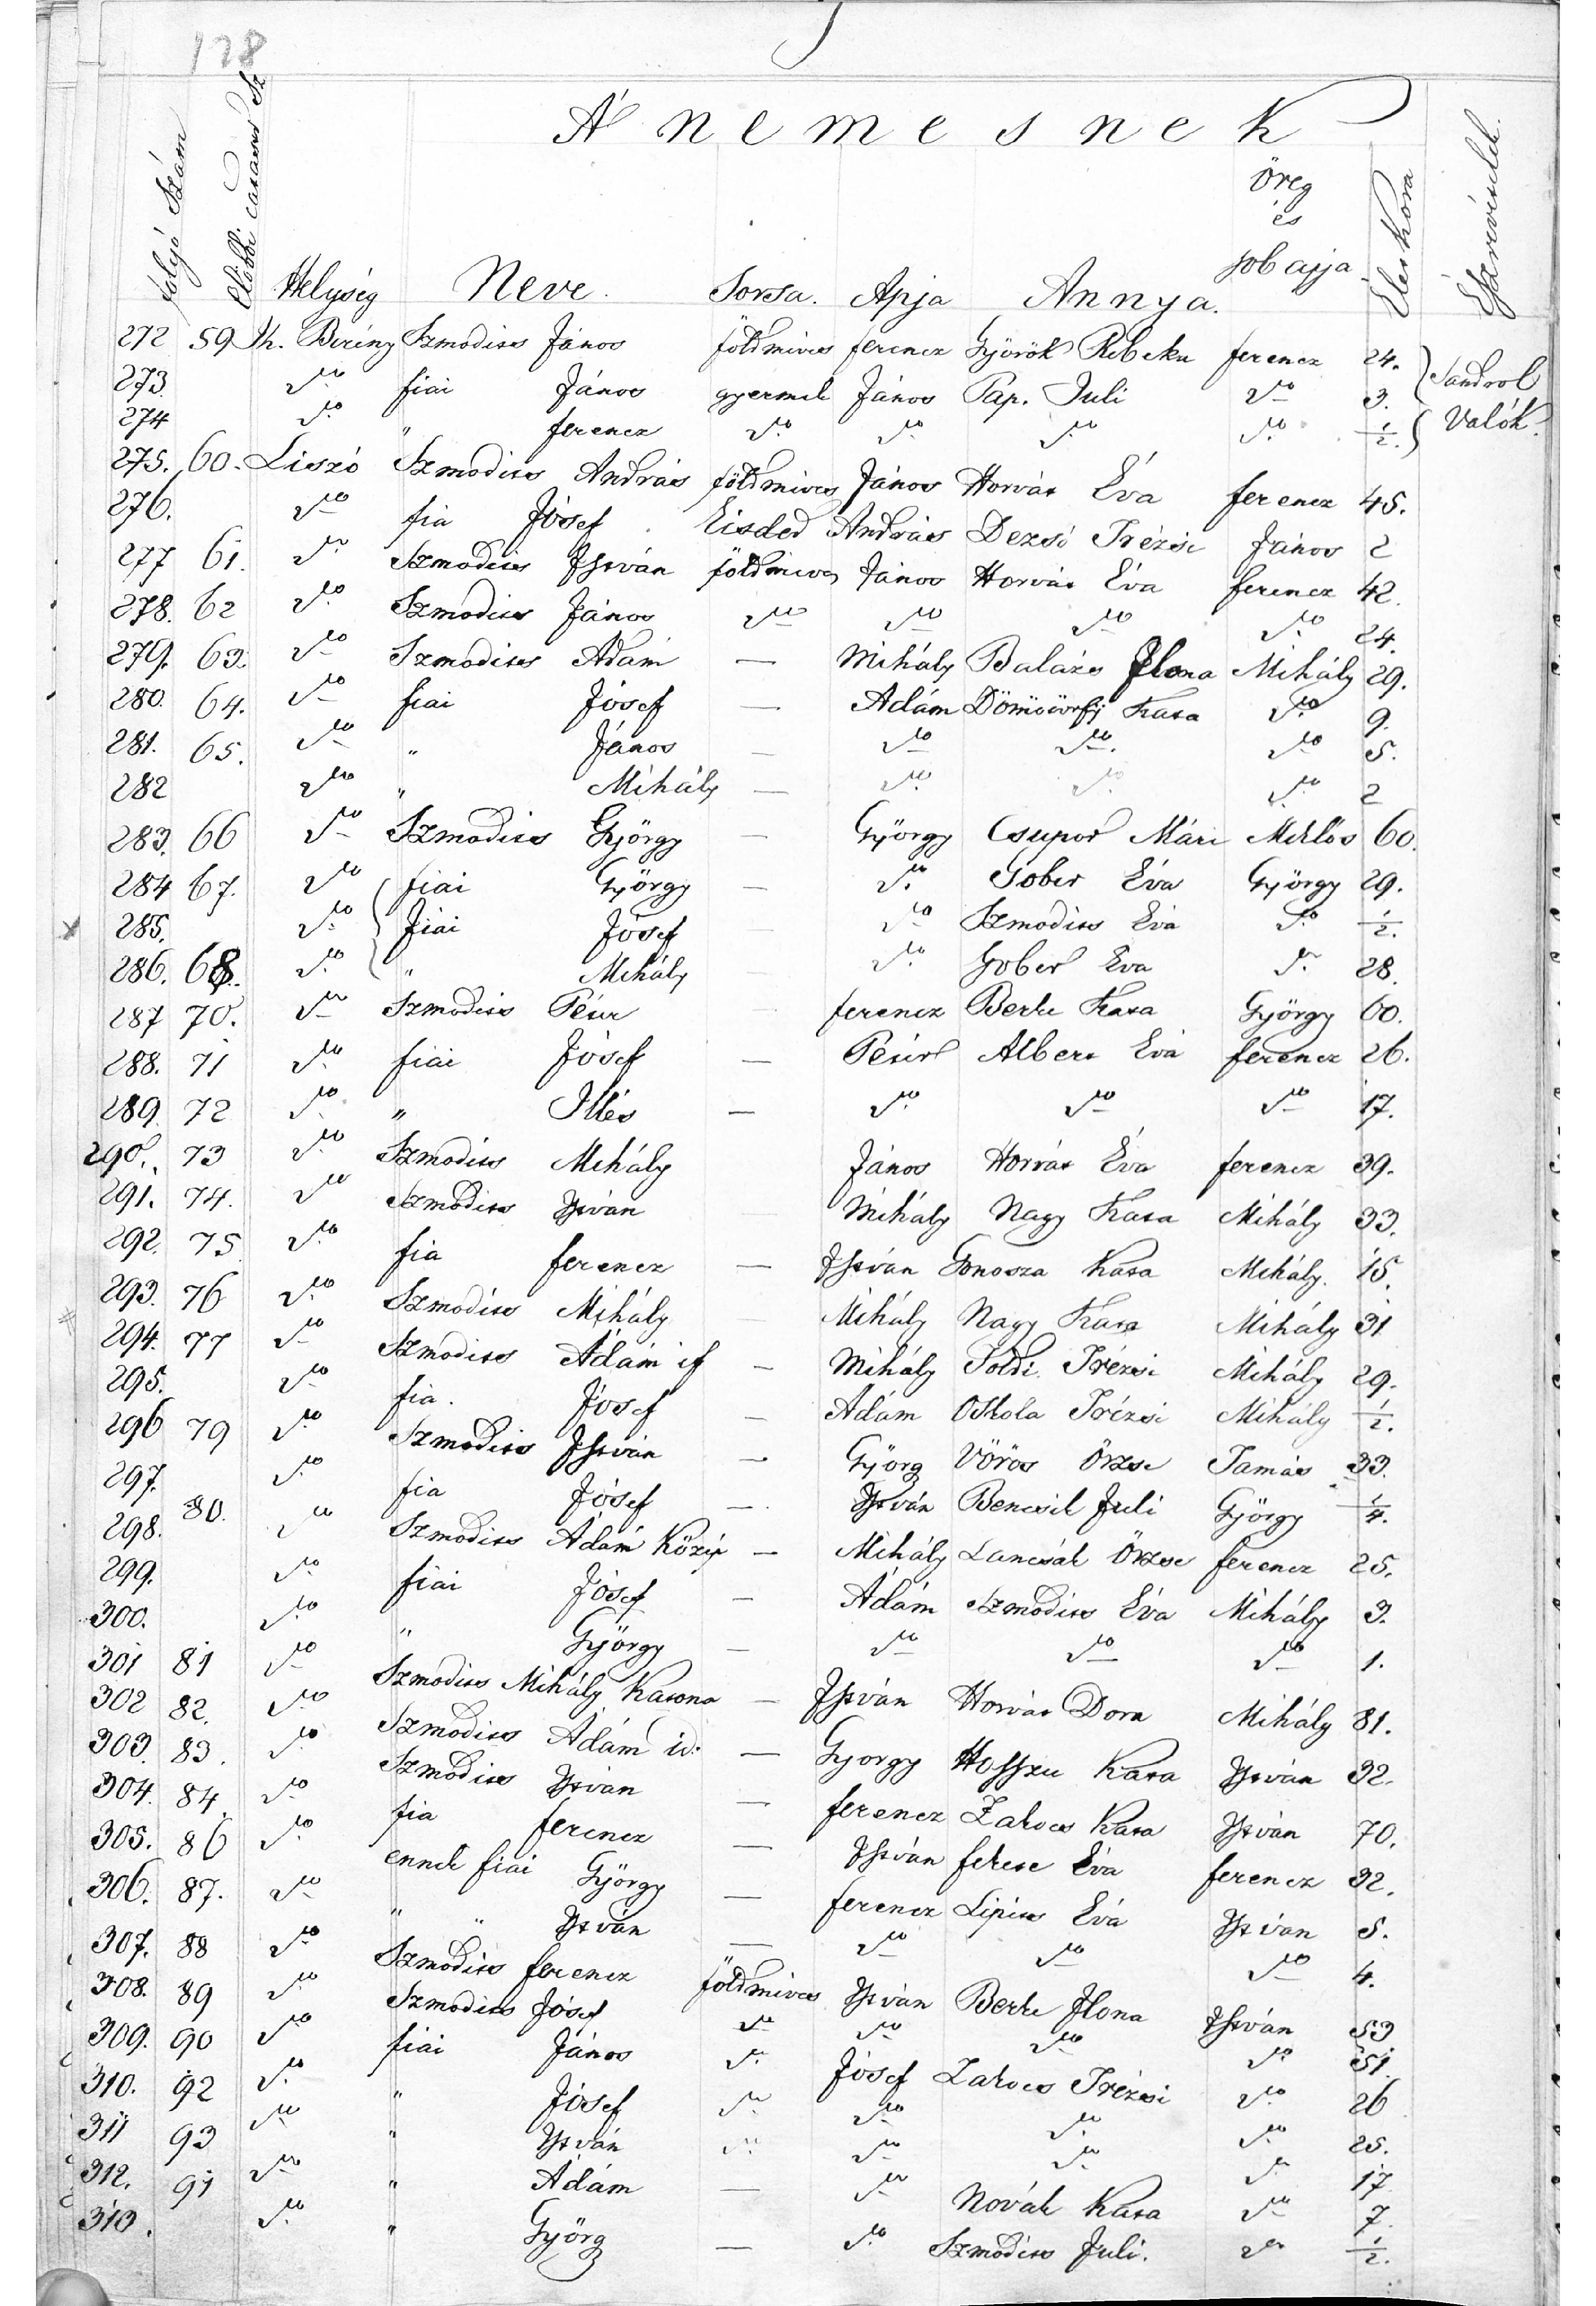 128
A' nemesnek
folyó Szám
előbbi Sz
Helység Neve. Sorsa. Apja Annya. öreg és job apja Elet Kora Eszrevételek.
272 59 K. Berény Szmodics János földmives ferencz Györök Rebeka ferencz 24.
273. do fiai János gyermek János Páp. Juli do 3. Sandrol
274 do " ferencz do do do do 1/2. Valók.
275. 60. Liszó Szmodics András földmives János Horvát Éva ferencz 45.
276. do fia Jósef András Dezsö Trézsi János 2
277 61. do Szmodics István földmives János Horvát Éva ferencz 42.
278. 62 do Szmodics János do do do do 24.
279. 63. do Szmodics Adám — Mihály Balázs Ilona Mihály 29.
280. 64. do fiai Jósef — Adám Kata do 9.
281. 65. do " János — do do. do 5.
282 do " Mihály — do do do 2
283. 66 do Szmodics György — György Csupor Mári Miklós 60.
284 67. do fiai György — do Gober Éva György 29.
285. do fiai Jósef do Szmodics Éva do 1/2.
286. 68. do " Mihály do Gober Éva do 28.
287 70. do Szmodics Péter ferencz Berke Kata György 60.
288. 71 do fiai Jósef — Péter Albert Éva ferencz 26.
289. 72 do " Illés — do do do 17.
290. 73 do Szmodics Mihály János Horvát Éva ferencz 39.
291. 74. do Szmodics István Mihály Nagy Kata Mihály 33.
292. 75 do fia ferencz — István Gonosza Kata Mihály. 15.
293. 76 do Szmodics Mihály Mihály Nagy Kata Mihály 31
294. 77 do Szmodics Ádám if — Mihály Toldi Trézsi Mihály 29.
295. do fia. Jósef — Adám Oskola Trézsi Mihály 1/2.
296 79 do Szmodics István — Györg Vörös Örzse Tamás 33.
297. do fia Jósef — István Bencsik Juli György 1/4.
298. 80. do Szmodics Ádám Közép — Mihály Lancsák Örzse ferencz 25.
299. do fiai Jósef — Ádám Szmodics Éva Mihály 3.
300. do " György — do do do 1.
301 81 do Szmodics Mihály Katona — István Horvát Dora Mihály 81.
302 82. do Szmodics Ádám id. — György Hosszu Kata István 32.
303. 83. do Szmodics István — ferencz Zakocs Kata István 70.
304. 84. do fia ferencz — István fekete Éva ferencz 32.
305. 86 do ennek fiai György — ferencz Lipics Éva István 5.
306. 87. do " " István — do do do 4.
307. 88 do Szmodics ferencz földmives István Berke Ilona István 53
308. 89 do Szmodics Jósef do do do do 51.
309. 90 do fiai János do Jósef Zakocs Trézsi do 26
310. 92 do " Jósef do do do do 25.
311 93 do " István do do do do 17
312. 91 do " Ádám — do Novák Kata do 7.
313. do " Györg — do Szmodics Juli. do 1/2.